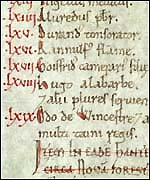 lxiiii Aluredus pbr.
lxv. Durand tonsorator.
lxvi. Rannulf flame.
lxvii Goisfrid camerari filie
lxviii hugo alabarbe.
⁊ alii plures
lxix Odo de Wincestre, ⁊ a
multi taini regis.
ITEM IN EADE HANTE
CIRCA NOVA FOREST